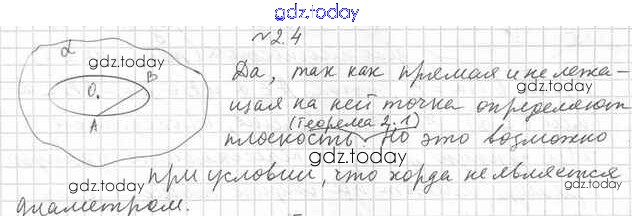 gdz.today
№2.4
α gdz.today
Да, так как прямая и не лежа-
B
O.
щая на ней точка определяют
A
(Теорема 2.1)
плоскость. Но это возможно
gdz.today
при условии, что хорда не является
gdz.today
gdz.today
диаметром.